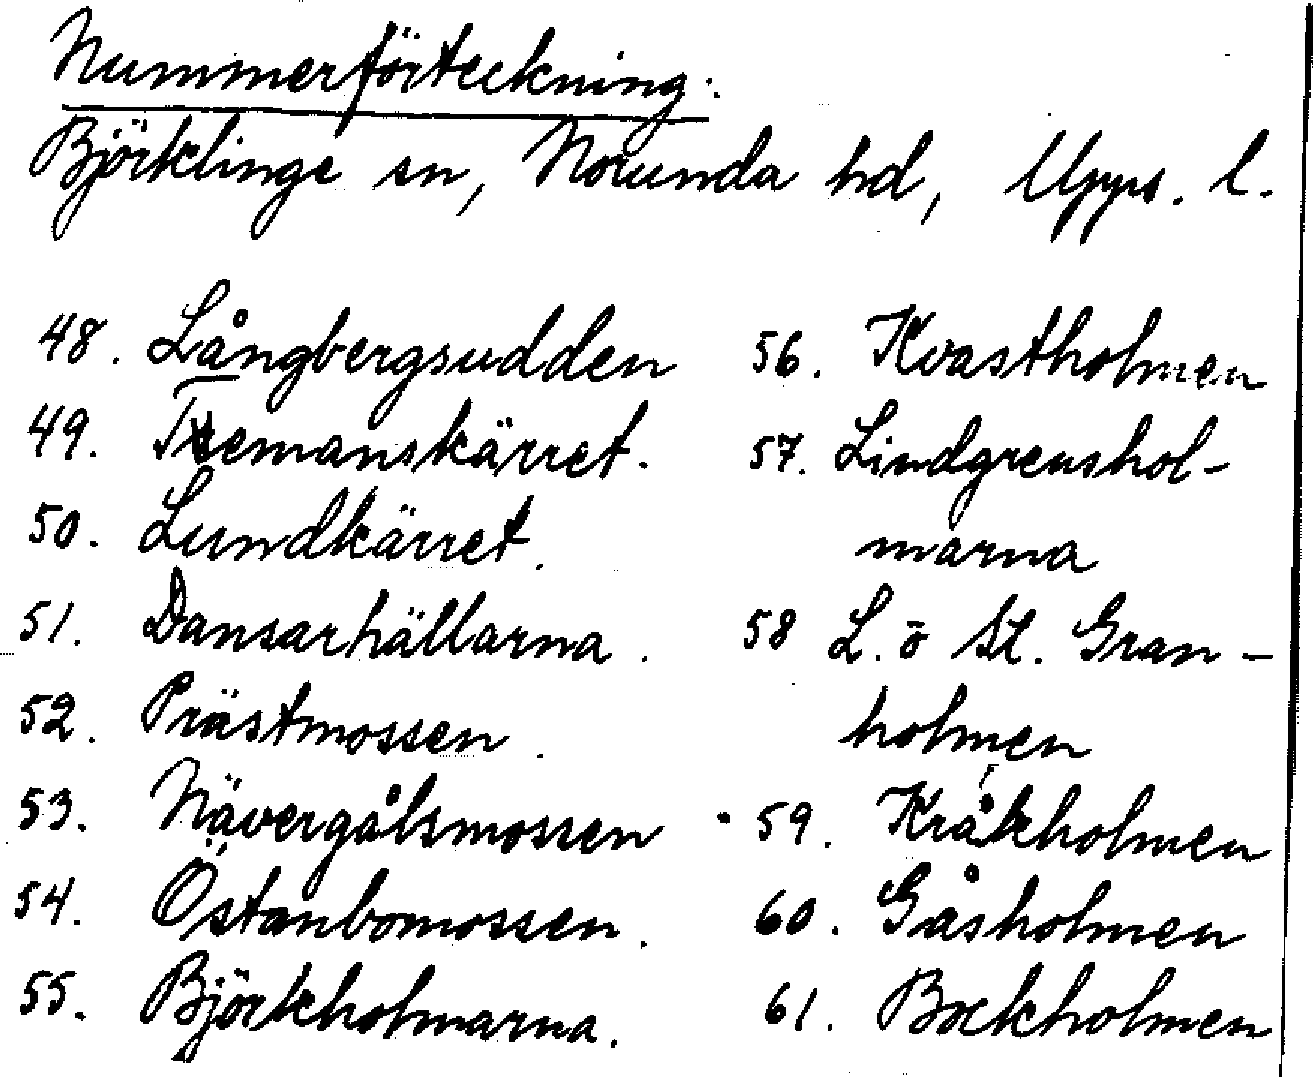 Nummerförteckning.
Björklinge sn, Norunda hd, Upps. l.
48. Långbergsudden
49. Tremanskärret.
50. Lundkärret.
51. Dansarhällarna.
52. Prästmossen.
53. Nävergålsmossen
54. Östanbomossen.
55. Björkholmarna.
56. Kvastholmen
57. Lindgreushol-
marna
58 L. o St. Gran-
holmen
59. Kråkholmen
60. Gåsholmen
61. Bockholmen